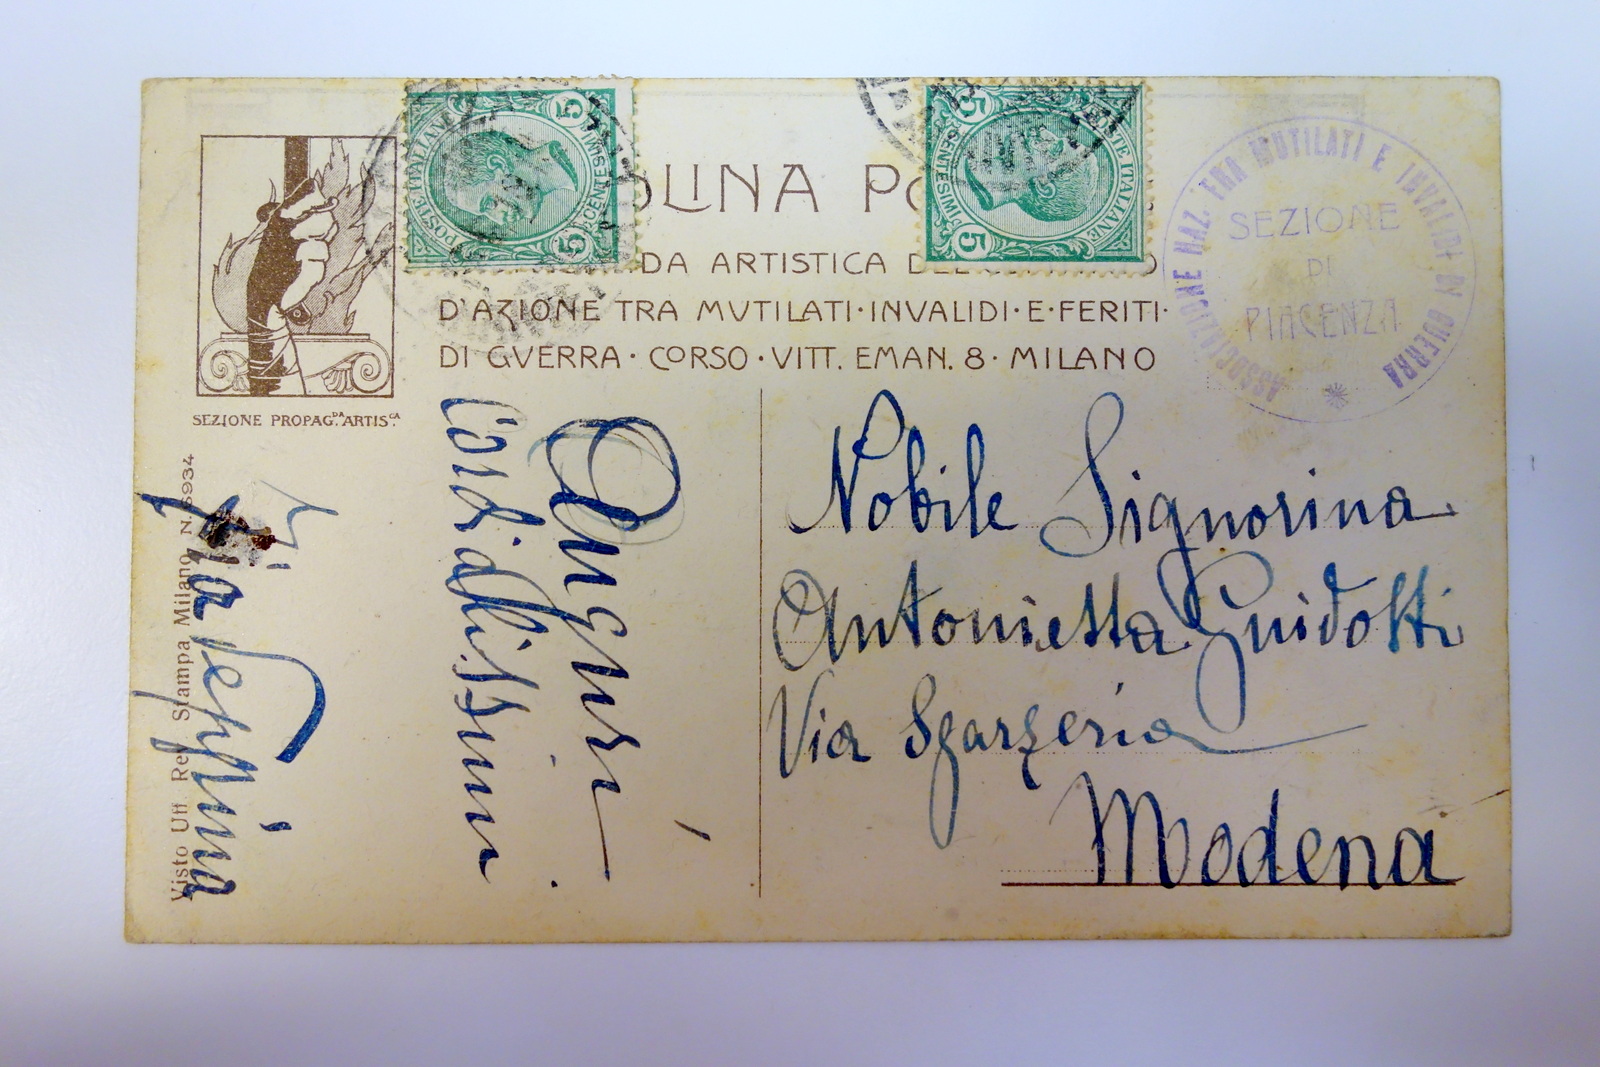 POSTE ITALIANE
5 CENTESIMI 5
5 CENTESIMI 5
POSTE ITALIANE
OLINA PO
DA ARTISTICA DEL
D'AZIONE TRA MVTILATI·INVALIDI·E·FERITI·
DI GVERRA·CORSO·VITT. EMAN. 8·MILANO
SEZIONE PROPAG.DA ARTIS.CA
ASSOCIAZIONE NAZ. FRA MUTILATI E INVALIDI DI GUERRA
SEZIONE
DI
PIACENZA
Nobile Signorina
Antonietta Guidotti
Via Sgarzeria
Modena
Auguri
Cordialissimi
Zia Peppina
Visto Uff. Rev. Stampa Milano N. 6934